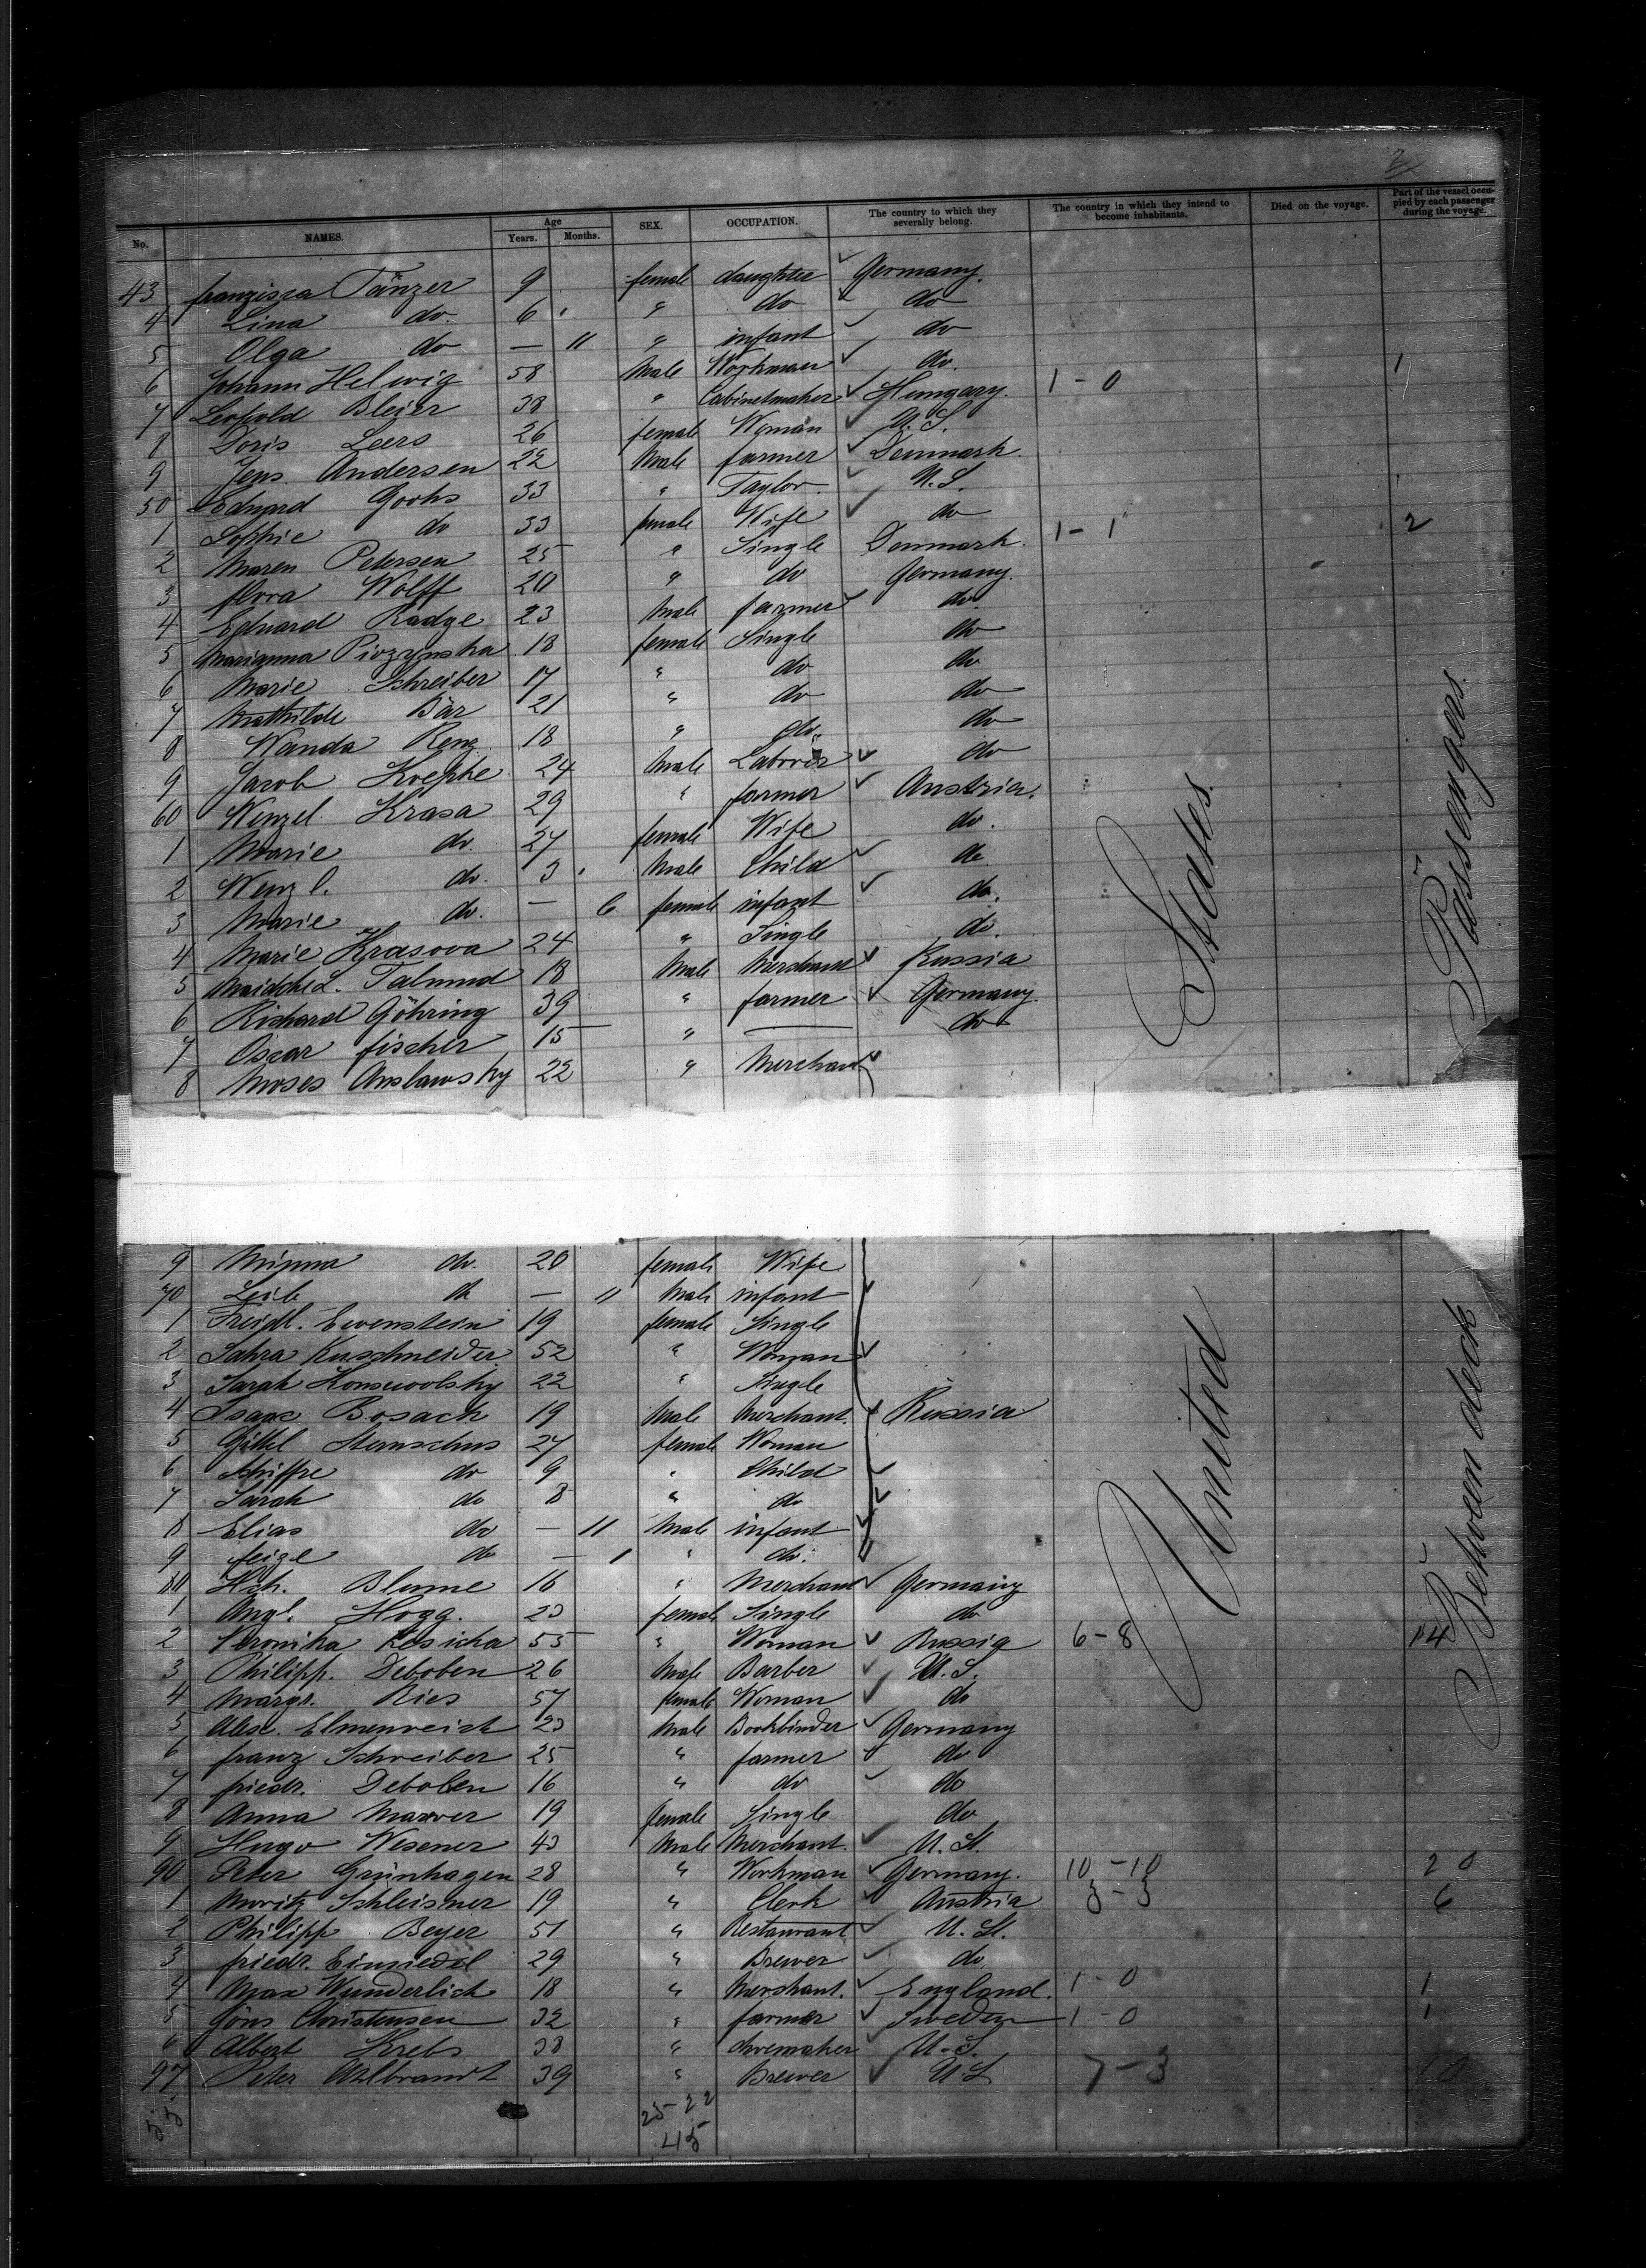 2
No. NAMES. Age Years. Months. SEX. OCCUPATION. The country to which they severally belong. The country in which they intend to become inhabitants. Died on the voyage. Part of the vessel occupied by each passenger during the voyage.
43 Franzisca Tänzer 9 female daughter Germany.
4 Lina do. 6 " do do
5 Olga do — 11 " infant do
6 Johann Helwig 58 Male Workman do. 1
7 Leopold Bleier 38 " Cabinetmaker Hungary. 1-0
8 Doris Leers 26 female Woman U.S.
9 Jens Andersen 22 Male farmer Denmark.
50 Eduard Goohs 33 " Taylor. U.S.
1 Sophie do 33 female Wife do 2
2 Maren Petersen 25 " Single Denmark. 1-1
3 flora Wolff 20 " do Germany.
4 Eduard Radge 23 Male farmer do.
5 Marianna Piozynska 18 female Single do
6 Marie Schreiber 17 " do do
7 Mathilde Bär 21 " do do
8 Wanda Renz 18 " do. do
9 Jacob Koepke 24 Male Laborer do
60 Wenzel Krasa 29 " farmer Austria.
1 Marie do. 27 female Wife do.
2 Wenzl. do. 3 Male Child do
3 Marie do. — 6 female infant do.
4 Marie Krasova 24 " Single do.
5 L. Talmud 18 Male Merchant Russia
6 Richard Göhring 39 " farmer Germany
7 Oscar fischer 15 " — do
8 Moses Anslawsky 22 " Merchant
9 Minna do. 20 female Wife
70 Leib do — 11 Male infant
1 Freidl. Ewenstein 19 female Single
2 Sahra Kuschneider 52 " Woman
3 Sarah 22 " Single
4 Isaac Bosack 19 Male Merchant. Russia
5 Gittel Sternschus 27 female Woman
6 Schiffre do 9 " Child
7 Sarah do 8 " do
8 Elias do — 11 Male infant
9 feize do — 1 " do.
80 Hch. Blume 16 " Merchant Germany
1 Angl. Hogg. 23 female Single do
2 Veronika Resicka 55 " Woman Russia 6-8 14
3 Philipp. Deboben 26 Male Barber U.S.
4 Margr. Ries 57 female Woman do
5 Alex. Elmenreich 23 Male Bookbinder Germany
6 franz Schreiber 25 " farmer do
7 friedr. Deboben 16 " do do
8 Anna Maxver 19 female Single do
9 Hugo Wesener 43 Male Merchant. U.St.
90 Peter Grünhagen 28 " Workman Germany. 10-10 20
1 Moritz Schleisner 19 " Clerk Austria 3-3 6
2 Philipp Beyer 51 " Restaurant U.St.
3 friedr. Einsiedel 29 " Brewer do
4 Max Wunderlich 18 " Merchant. England. 1-0 1
5 Jöns Christensen 32 " farmer Sweden 1-0 1
6 Albert Krebs 38 " U.S.
97 Peter Ahlbrandt 39 " Brewer US 7-3 10
55 25-22
45
United States.
Between deck Passengers.